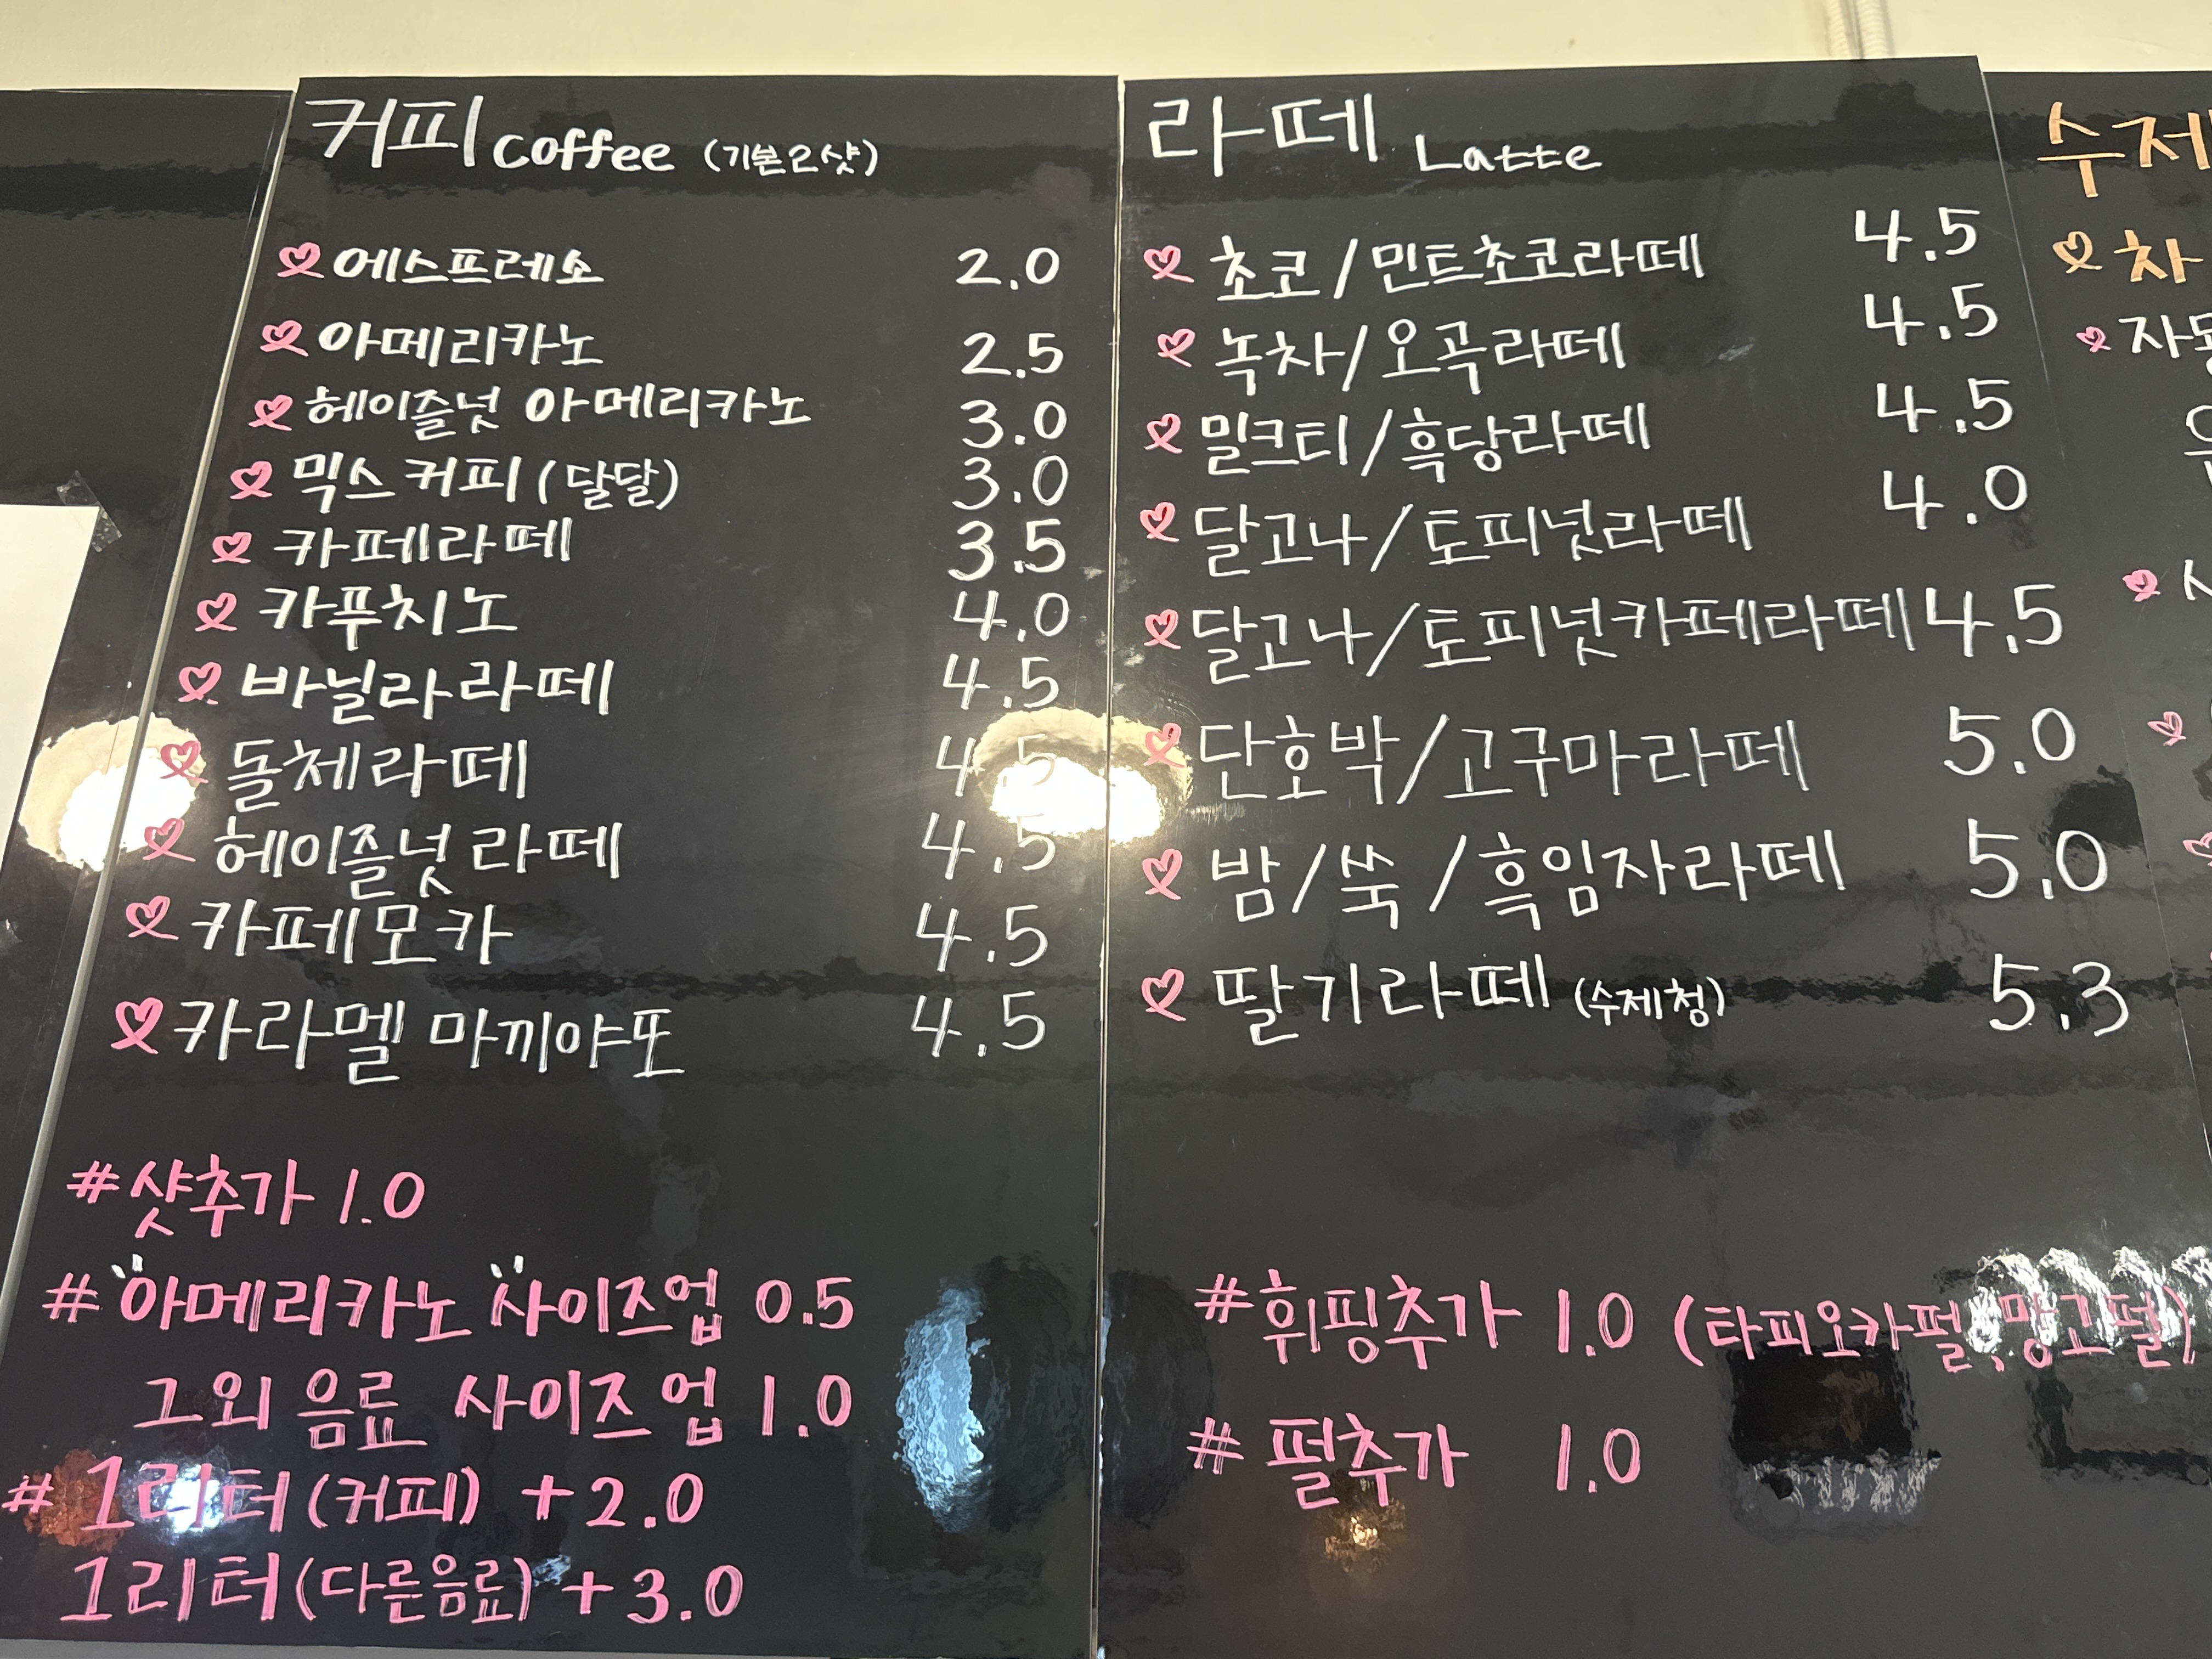 커피 Coffee (기본2샷)
에스프레소 2.0
아메리카노 2.5
헤이즐넛 아메리카노 3.0
믹스커피(달달) 3.0
카페라떼 3.5
카푸치노 4.0
바닐라라떼 4.5
돌체라떼 4.5
헤이즐넛라떼 4.5
카페모카 4.5
카라멜 마끼야또 4.5
#샷추가 1.0
#아메리카노 사이즈업 0.5
그외 음료 사이즈업 1.0
#1리터(커피) +2.0
1리터(다른음료) +3.0
라떼 Latte
초코/민트초코라떼 4.5
녹차/오곡라떼 4.5
밀크티/흑당라떼 4.5
달고나/토피넛라떼 4.0
달고나/토피넛카페라떼 4.5
단호박/고구마라떼 5.0
밤/쑥/흑임자라떼 5.0
딸기라떼 (수제청) 5.3
#휘핑추가 1.0 (타피오카펄,망고펄)
#펄추가 1.0
수제
차